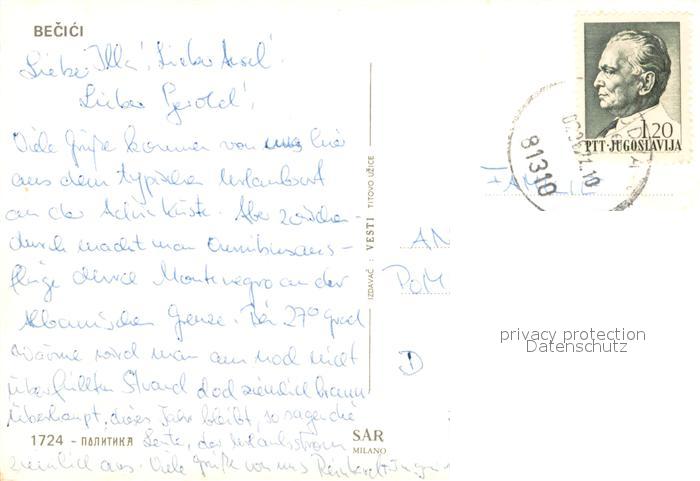 BEČIĆI
Liebe Illa! Lieber Axel!
Lieber Gerold!
Viele Grüße kommen von uns hier
aus dem typischen Urlaubsort
an der Adriaküste. Aber zwischen-
durch macht man Omnibusaus-
flüge durch Montenegro an der
Albanischen Grenze. Bei 27° grad
Wärme wird man am noch nicht
überfüllten Strand doch ziemlich braun
Überhaupt, dieses Jahr bleibt, so sagen die
Leute, der Urlaubsstrom
ziemlich aus. Viele Grüße von uns
1724 - ПОЛИТИКА
SAR
MILANO
IZDAVAČ : VESTI TITOVO UŽICE
1,20
PTT-JUGOSLAVIJA
81310
FAMILIE
AN
POM
D
privacy protection
Datenschutz